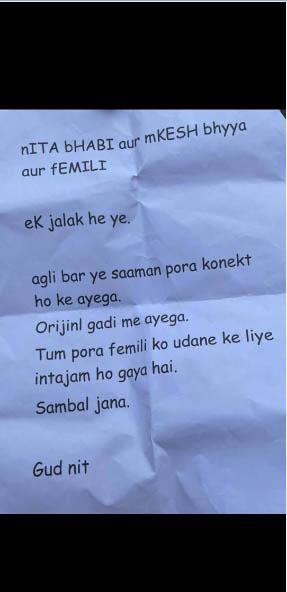 nITA bHABI aur mKESH bhyya
aur fEMILI
eK jalak he ye.
agli bar ye saaman pora konekt
ho ke ayega.
Orijinl gadi me ayega.
Tum pora femili ko udane ke liye
intajam ho gaya hai.
Sambal jana.
Gud nit